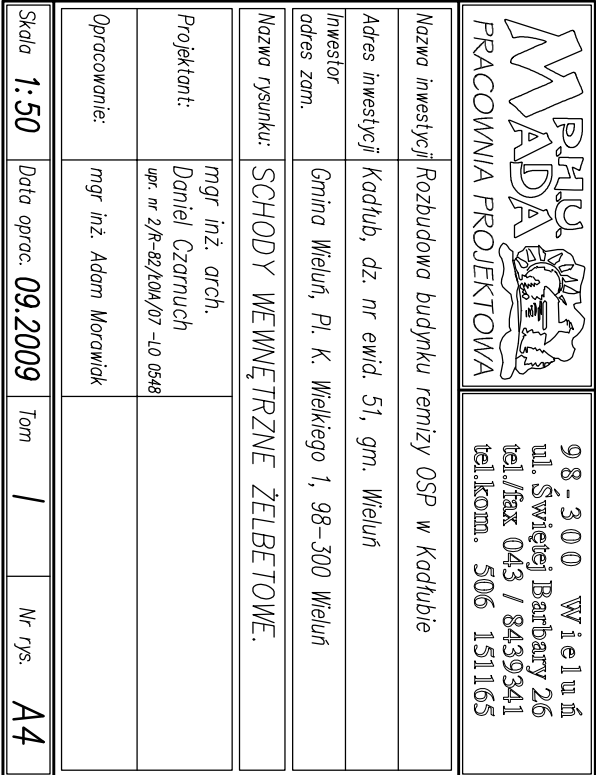 P.H.U.
MADA
PRACOWNIA PROJEKTOWA
98-300 Wieluń
ul. Świętej Barbary 26
tel./fax 043 / 8439341
tel.kom. 506 151165
Nazwa inwestycji Rozbudowa budynku remizy OSP w Kadłubie
Adres inwestycji Kadłub, dz. nr ewid. 51, gm. Wieluń
Inwestor
adres zam. Gmina Wieluń, Pl. K. Wielkiego 1, 98-300 Wieluń
Nazwa rysunku: SCHODY WEWNĘTRZNE ŻELBETOWE.
Projektant: mgr inż. arch.
Daniel Czarnuch
upr. nr 2/R-82/ŁOIA/07 -LO 0548
Opracowanie: mgr inż. Adam Morawiak
Skala 1:50 Data oprac. 09.2009 Tom I Nr rys. A4